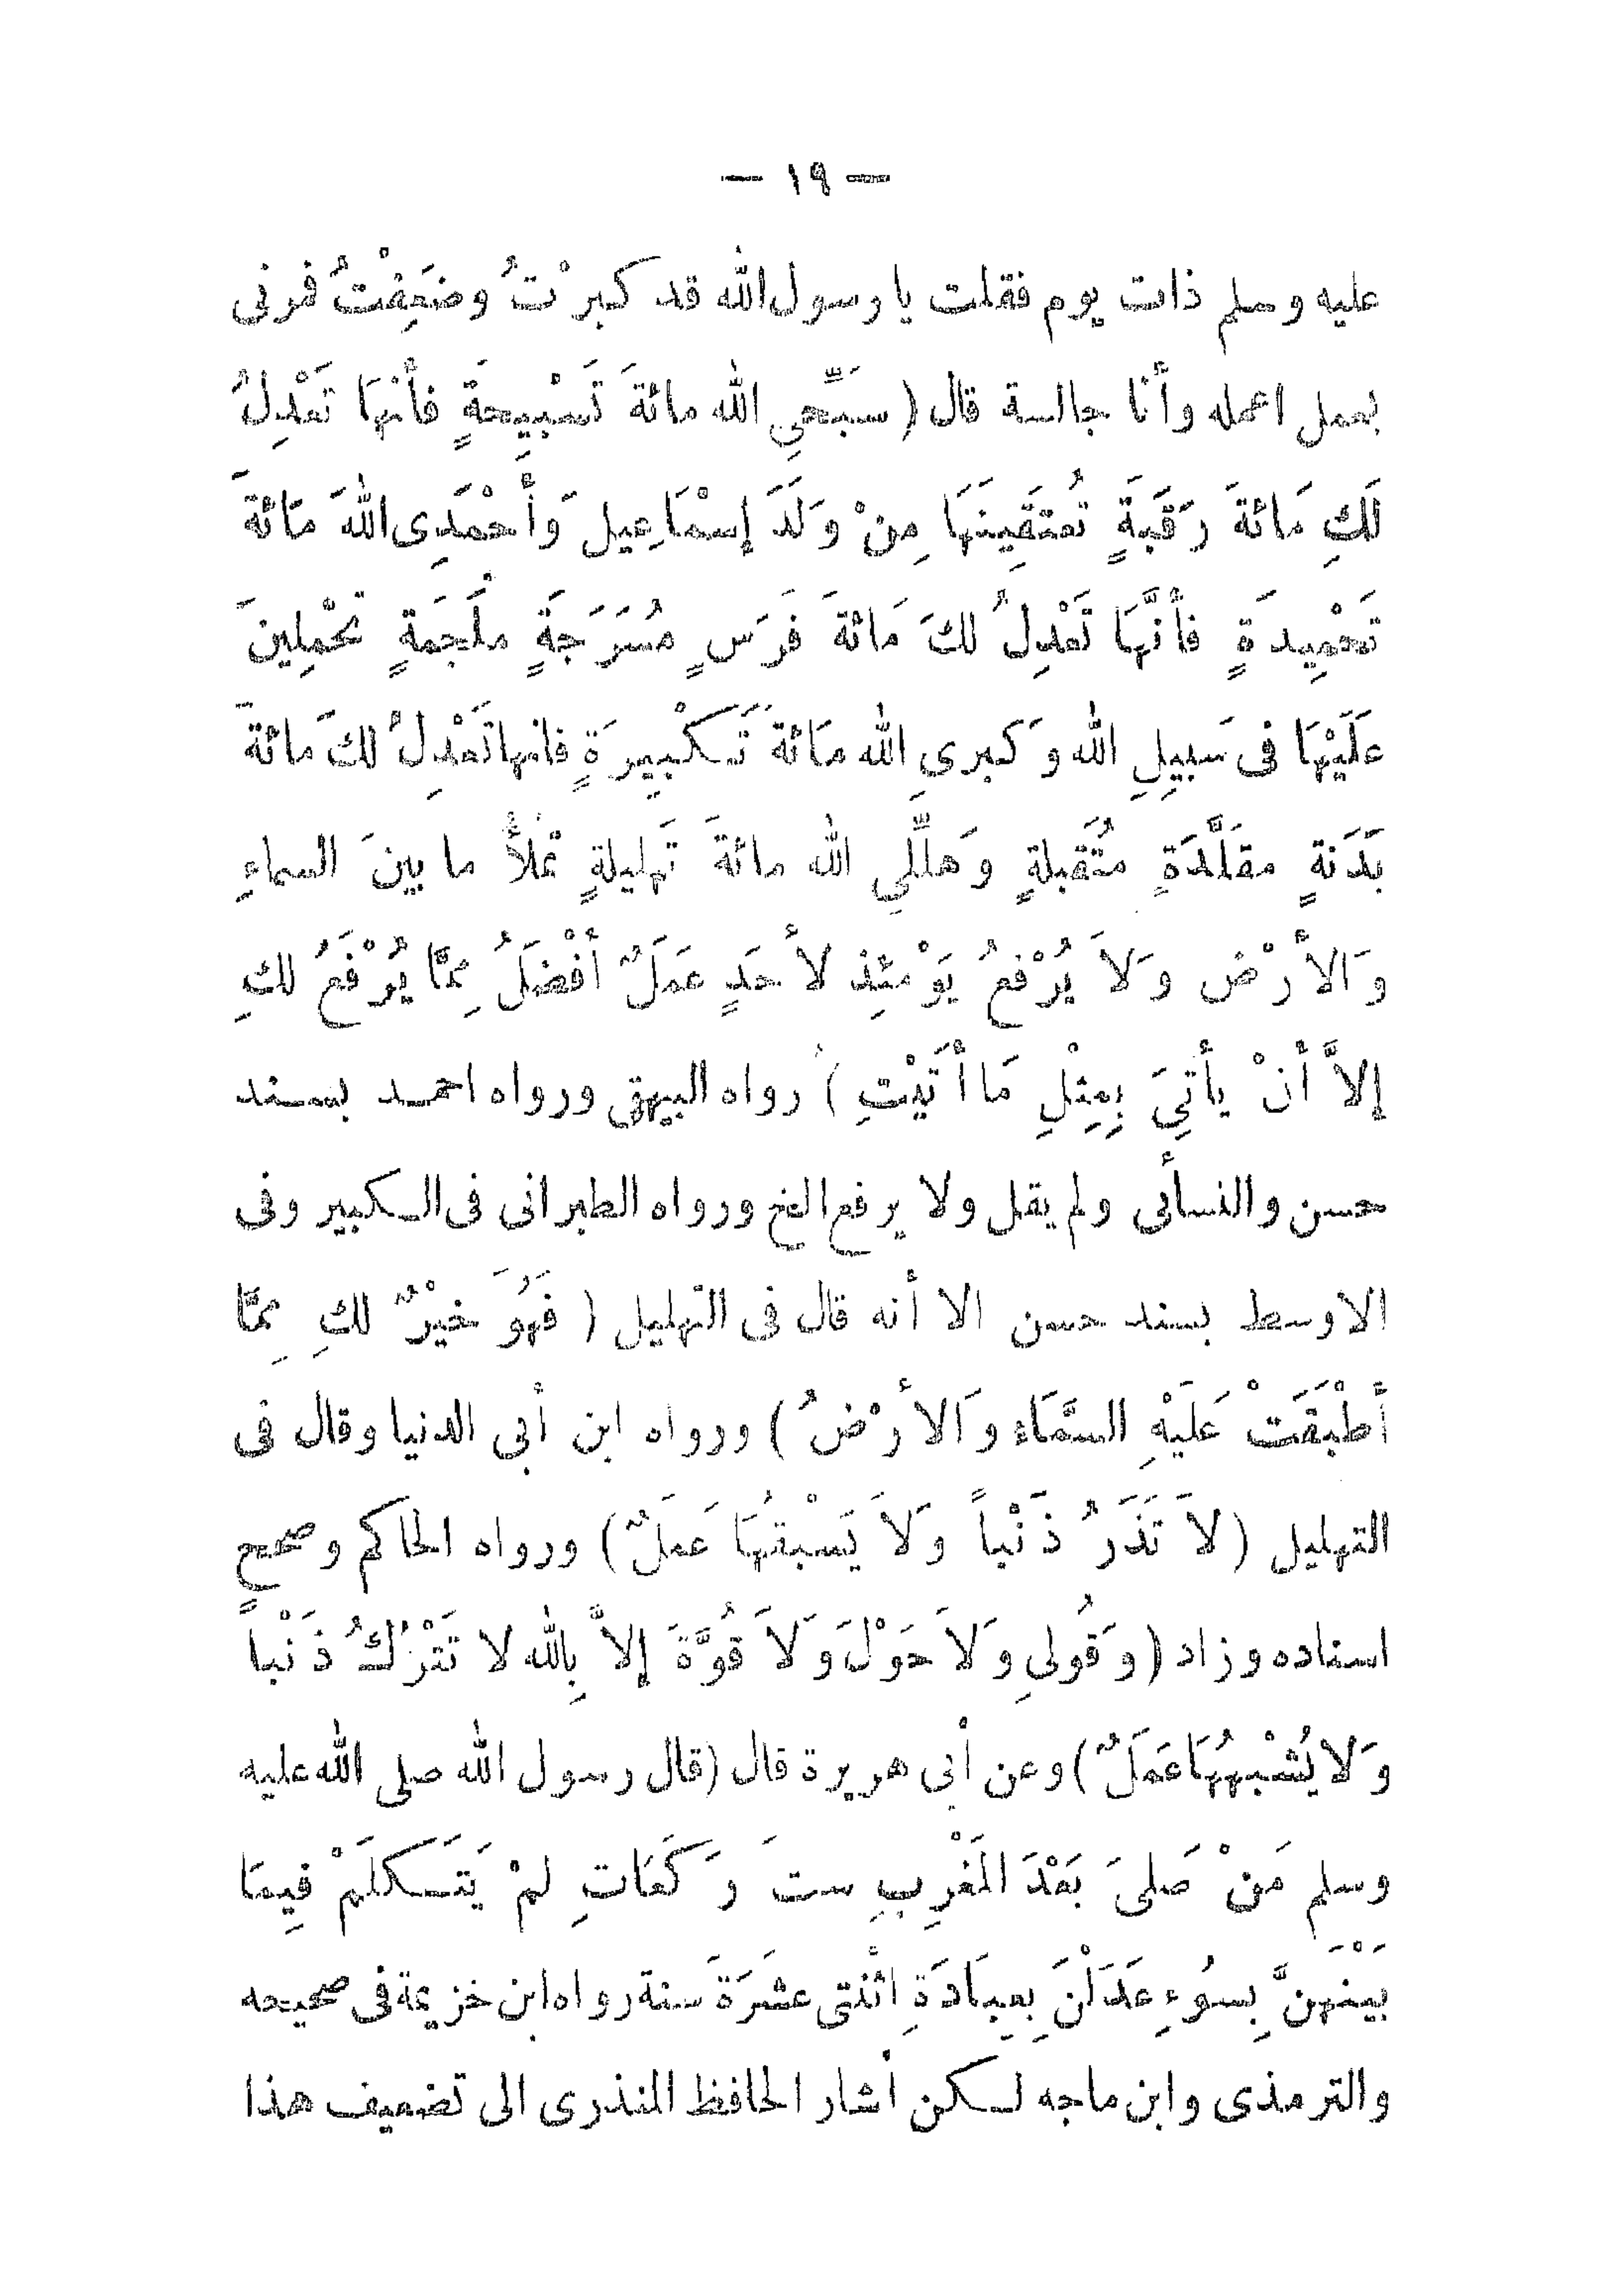 — ١٩ —
عليه وسلم ذات يوم فقلت يا رسول الله قد كبرْتُ وضَعِفْتُ فمرنى
بعمل اعمله وأنا جالسة قال (سَبِّحِي الله مائةَ تَسْبِيِحَةٍ فأنهَا تَعْدِلُ
لَكِ مَائةَ رَقَبَةٍ تُعتَقِينَهَا مِنْ وَلَدَ إسْمَاعِيل وَأَحْمَدِى اللهَ مَائةَ
تَحْمِيدَةٍ فأنَّهَا تَعْدِلُ لكَ مَائةَ فَرَسٍ مُسَرَجَةٍ ملْجَمَةٍ تَحْمِلِينَ
عَلَيْهَا فى سَبِيلِ الله وَكبرىِ الله مَائةَ تَكْبِيِرَةٍ فانها تَعْدِلُ لكَ مائةَ
بَدَنةٍ مقلَّدَةٍ متُقَبلةٍ وَهلِّلِي الله مائةَ تَهليلةٍ تملأُ ما بينَ السماءِ
وَالأَرْض وَلاَ يُرْفعُ يَوْمئِذ لأحَدٍ عَمَلٌ أفْضَلُ مِمَّا يُرْفَعُ لكِ
إلاَّ أنْ يأتىِ بِمِثِْلِ مَا أتَيْتِ) رواه البيهقى ورواه احمد بسند
حسن والنسأى ولم يقل ولا يرفع الخ ورواه الطبرانى فى الكبير وفى
الاوسط بسند حسن الا أنه قال فى التهليل (فَهُوَ خيْرٌ لكِ مِمَّا
أطْبَقَتْ عَليْهِ السَّمَاء وَالأرْضُ) ورواه ابن أبى الدنيا وقال فى
التهليل (لاَ تَذَرُ ذَنْباً وَلاَ يَسْبقُهَا عَمَلٌ) ورواه الحاكم وصحيح
اسناده وزاد (وَقُولىِ وَلاَ حَوْلَ وَلاَ قُوَّةَ إلاَّ بِالله لا تَتْرُكُ ذَنْباً
وَلا يُشْبهُهَا عَمَلٌ) وعن أبى هريرة قال (قال رسول الله صلى الله عليه
وسلم مَنْ صَلىَ بَعْدَ المَغْرِبِ ستَ رَكَعَاتِ لمْ يَتَكلَمْ فِيمَا
بَيْنَهنَّ بِسوُءِ عَدَلْنَ بِعِبَادَةِ اثْنتى عشَرَةَ سنة رواه ابن خزيمة فى صحيحه
والترمذى وابن ماجه لكن أشار الحافظ المنذرى الى تضعيف هذا